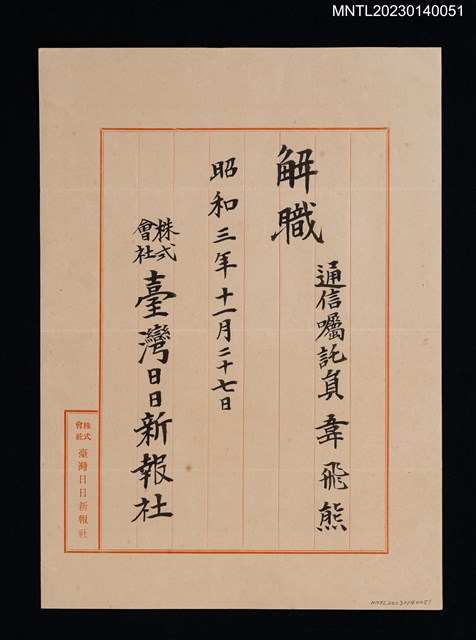 MNTL20230140051
通信囑託員 韋飛熊
解職
昭和三年十一月二十七日
株式會社 臺灣日日新報社
株式會社 臺灣日日新報社
MNTL20230140051